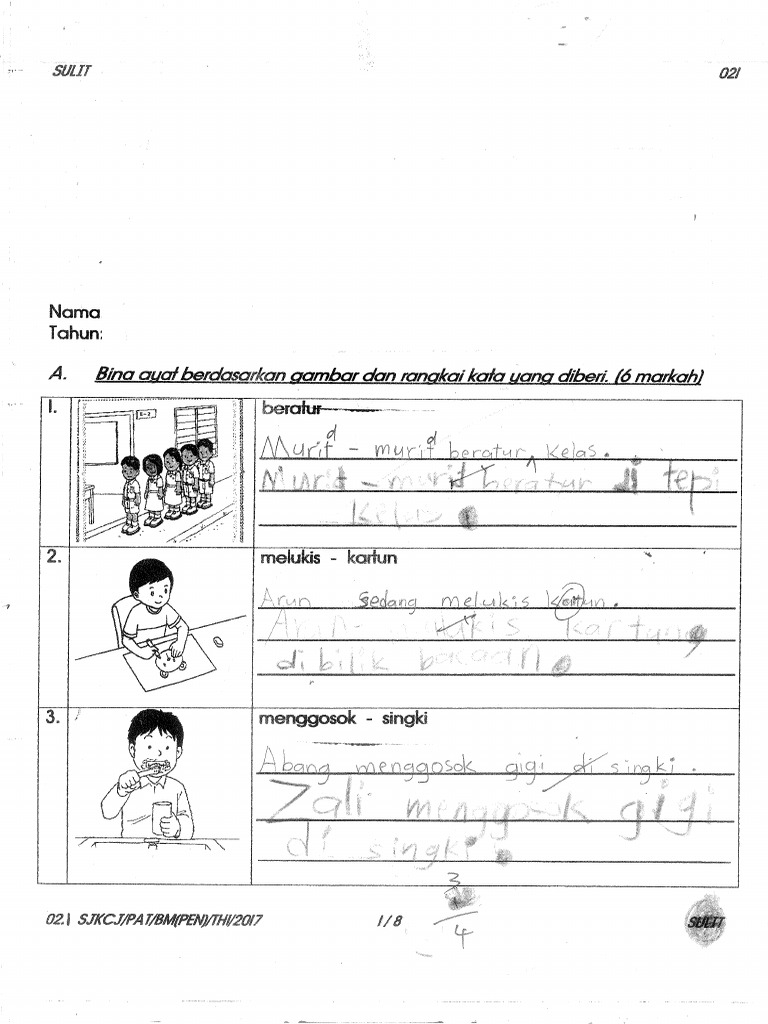 SULIT 021
Nama
Tahun:
A. Bina ayat berdasarkan gambar dan rangkai kata yang diberi. (6 markah)
1. beratur
d d
Murit - murit beratur ^ kelas.
Murid - murid beratur di tepi
kelas.
2. melukis - kartun
Arun sedang melukis katun.
Arun melukis kartun
di bilik bacaan.
3. menggosok - singki
Abang menggosok gigi di singki.
Zali menggosok gigi
di singki.
3
4
02.1 SJKCJ/PAT/BM(PEN)/TH1/2017 1/8 SULIT